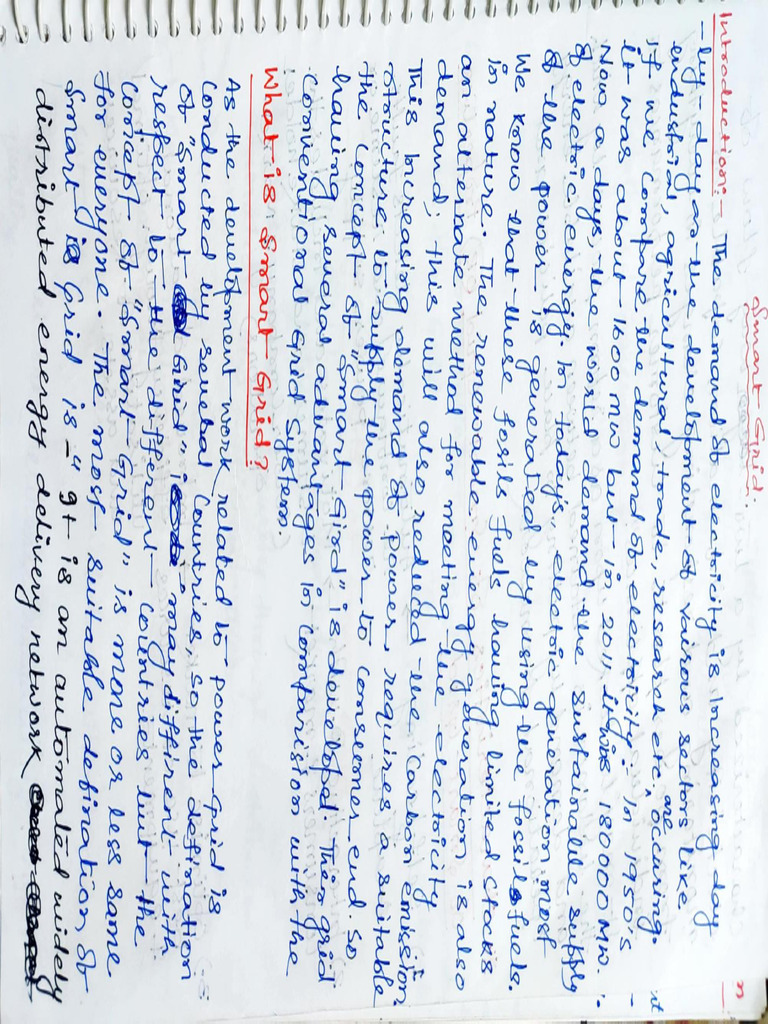 Smart Grid.
Introduction:- The demand of electricity is increasing day
-by-day as the development of vairous sectors like
endustrial, agricultural, trade, research etc, are occuring.
If we compare the demand of electricity - in 1950's -
it was about 1600 MW but - in 2011, it is 18000 MW.
Now a days, the world demand the sustainable supply
of electric energy. In todays, electric generation most
of the power is generated by using the fossils fuels.
We know that these fossils fuels having limited stocks
in nature. The renewable energy generation is also
an alternate method for meeting the electricity
demand; this will also reduced the carbon emission.
This increasing demand of power, requires a suitable
structure to supply the power to consumer end. so
the concept of "Smart Gird" is developed. This grid
having several advantages in comparision with the
Conventional Grid System.
What is Smart Grid?
As the development work related to power grid is
conducted by several countries, so the defination
of "Smart Grid" may diffirent with
respect to the different countries but the
concept of "Smart Grid" is more or less same
for everyone. The most suitable defination of
Smart Grid is - "It is an automated widely
distributed energy delivery network